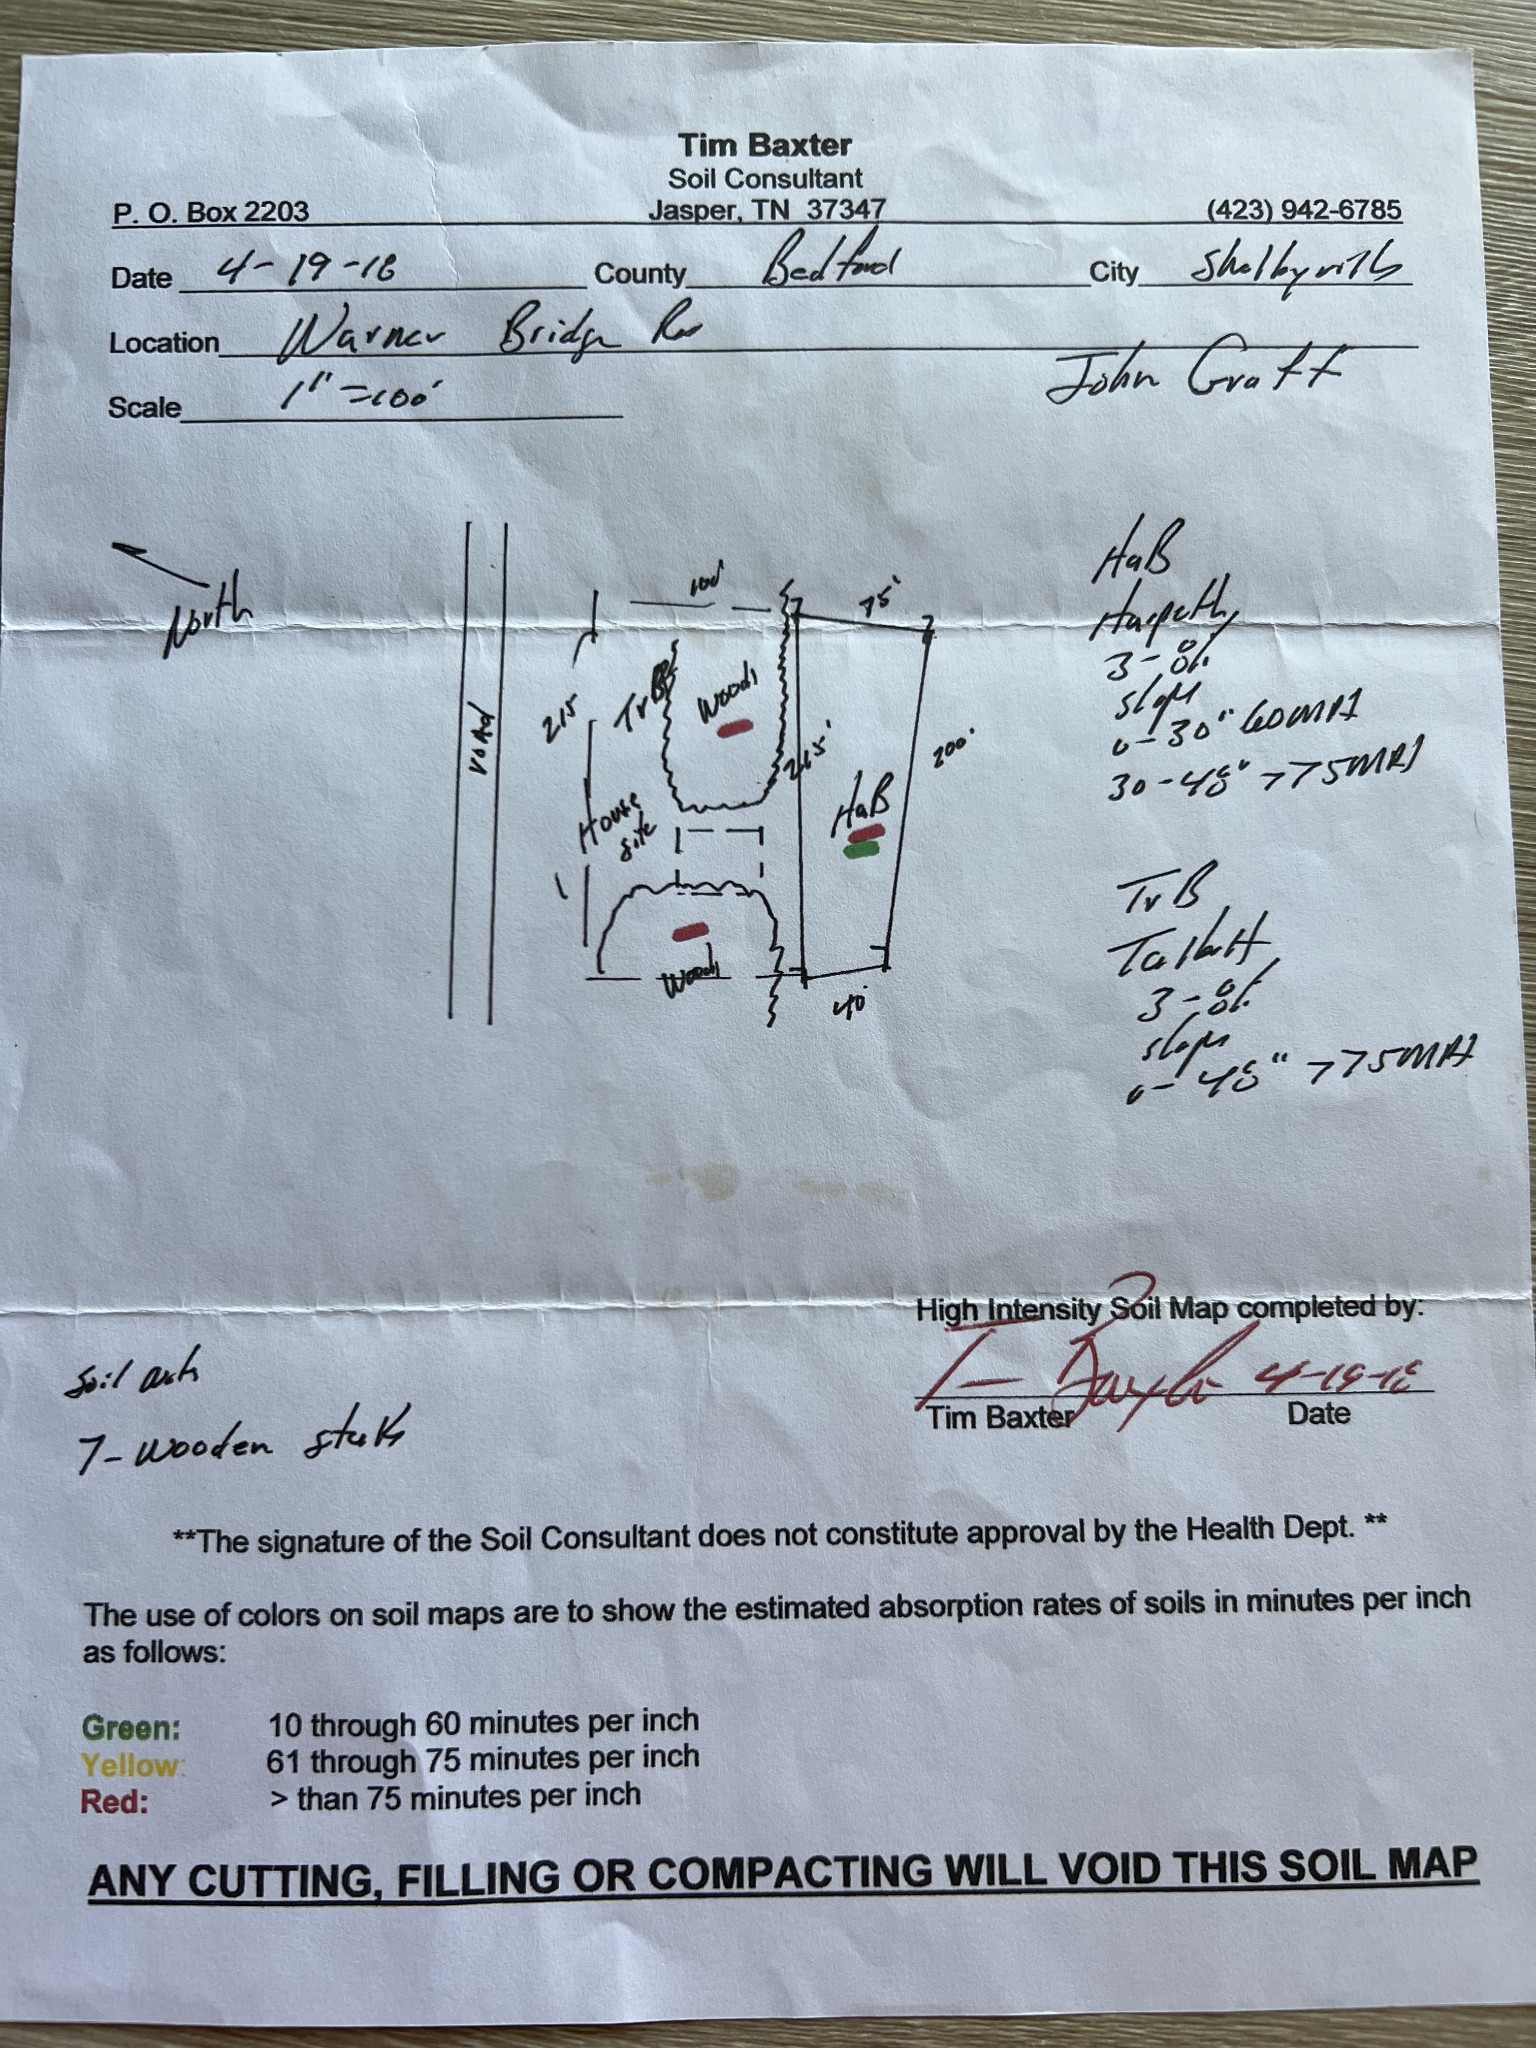 Tim Baxter
Soil Consultant
P. O. Box 2203 Jasper, TN 37347 (423) 942-6785
Date 4-19-18 County Bedford City Shelbyville
Location Warner Bridge Rd
John Graff
Scale 1"=100'
North
road
100'
75'
215
TrB
Woods
215'
200'
HaB
House
site
Woods
40'
HaB
Harpeth
3-8%
slope
0-30" 60MPI
30-48" >75MPI
TrB
Talbott
3-8%
slope
0-48" >75MPI
High Intensity Soil Map completed by:
Tim Baxter 4-19-18
Tim Baxter Date
Soil
7-wooden
**The signature of the Soil Consultant does not constitute approval by the Health Dept. **
The use of colors on soil maps are to show the estimated absorption rates of soils in minutes per inch
as follows:
Green: 10 through 60 minutes per inch
Yellow: 61 through 75 minutes per inch
Red: > than 75 minutes per inch
ANY CUTTING, FILLING OR COMPACTING WILL VOID THIS SOIL MAP